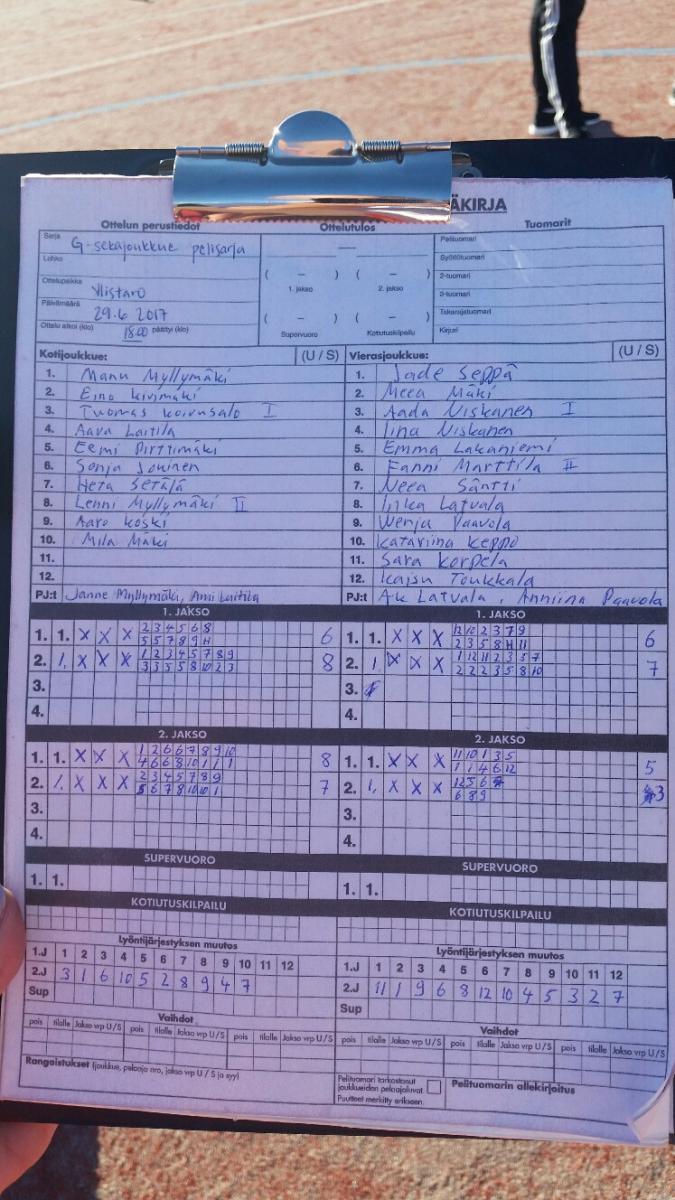 ÄKIRJA
Ottelun perustiedot Ottelutulos Tuomarit
Sarja G-sekajoukkue pelisarja
Lohko
Ottelupaikka Ylistaro
Päivämäärä 29.6 2017
Ottelu alkoi (klo) 18.00 päättyi (klo)
( – ) ( – )
1. jakso 2. jakso
( – ) ( – )
Supervuoro Kotiutuskilpailu
Pelituomari
Syöttötuomari
2-tuomari
3-tuomari
Takarajatuomari
Kirjuri
Kotijoukkue: (U / S) Vierasjoukkue: (U / S)
1. Manu Myllymäki 1. Jade Seppä
2. Eino Kivimäki 2. Meea Mäki
3. Tuomas Koivusalo I 3. Aada Niskanen I
4. Aava Laitila 4. Iina Niskanen
5. Eemi Pirttimäki 5. Emma Lakaniemi
6. Sonja Jouinen 6. Fanni Marttila II
7. Heta Setälä 7. Neea Säntti
8. Lenni Myllymäki II 8. Latvala
9. Aaro Koski 9. Wenja Paavola
10. Mila Mäki 10. Katariina Keppo
11. 11. Sara Korpela
12. 12. Kaisu Toukkala
PJ:t Janne Myllymäki, Anu Laitila PJ:t Aki Latvala, Anniina Paavola
1. JAKSO 1. JAKSO
1. 1. X X X 2 3 4 5 6 8 6 1. 1. X X X 12 10 2 3 7 9 6
5 5 7 8 9 11 2 3 5 8 11 11
2. 1. X X X 1 2 3 4 5 7 8 9 8 2. 1. X X X 1 12 11 2 3 5 7 7
3 3 5 5 8 10 2 3 2 2 2 3 5 8 10
3. 3.
4. 4.
2. JAKSO 2. JAKSO
1. 1. X X X 1 2 6 6 7 8 9 10 8 1. 1. X X X 11 10 1 3 5 5
4 6 6 8 10 1 1 1 1 1 4 6 12
2. 1. X X X 2 3 4 5 7 8 9 7 2. 1. X X X 12 5 6 3
5 6 7 8 10 10 1 6 8 9
3. 3.
4. 4.
SUPERVUORO SUPERVUORO
1. 1. 1. 1.
KOTIUTUSKILPAILU KOTIUTUSKILPAILU
Lyöntijärjestyksen muutos Lyöntijärjestyksen muutos
1.J 1 2 3 4 5 6 7 8 9 10 11 12 1.J 1 2 3 4 5 6 7 8 9 10 11 12
2.J 3 1 6 10 5 2 8 9 4 7 2.J 11 1 9 6 8 12 10 4 5 3 2 7
Sup Sup
Vaihdot Vaihdot
pois tilalle Jakso vrp U / S pois tilalle Jakso vrp U / S pois tilalle Jakso vrp U / S pois tilalle Jakso vrp U / S pois tilalle Jakso vrp U / S pois tilalle Jakso vrp U / S
Rangaistukset (joukkue, pelaaja nro, jakso vrp U / S ja syy)
Pelituomari tarkastanut
joukkueiden pelaajaluvat
Puutteet merkitty erikseen.
Pelituomarin allekirjoitus